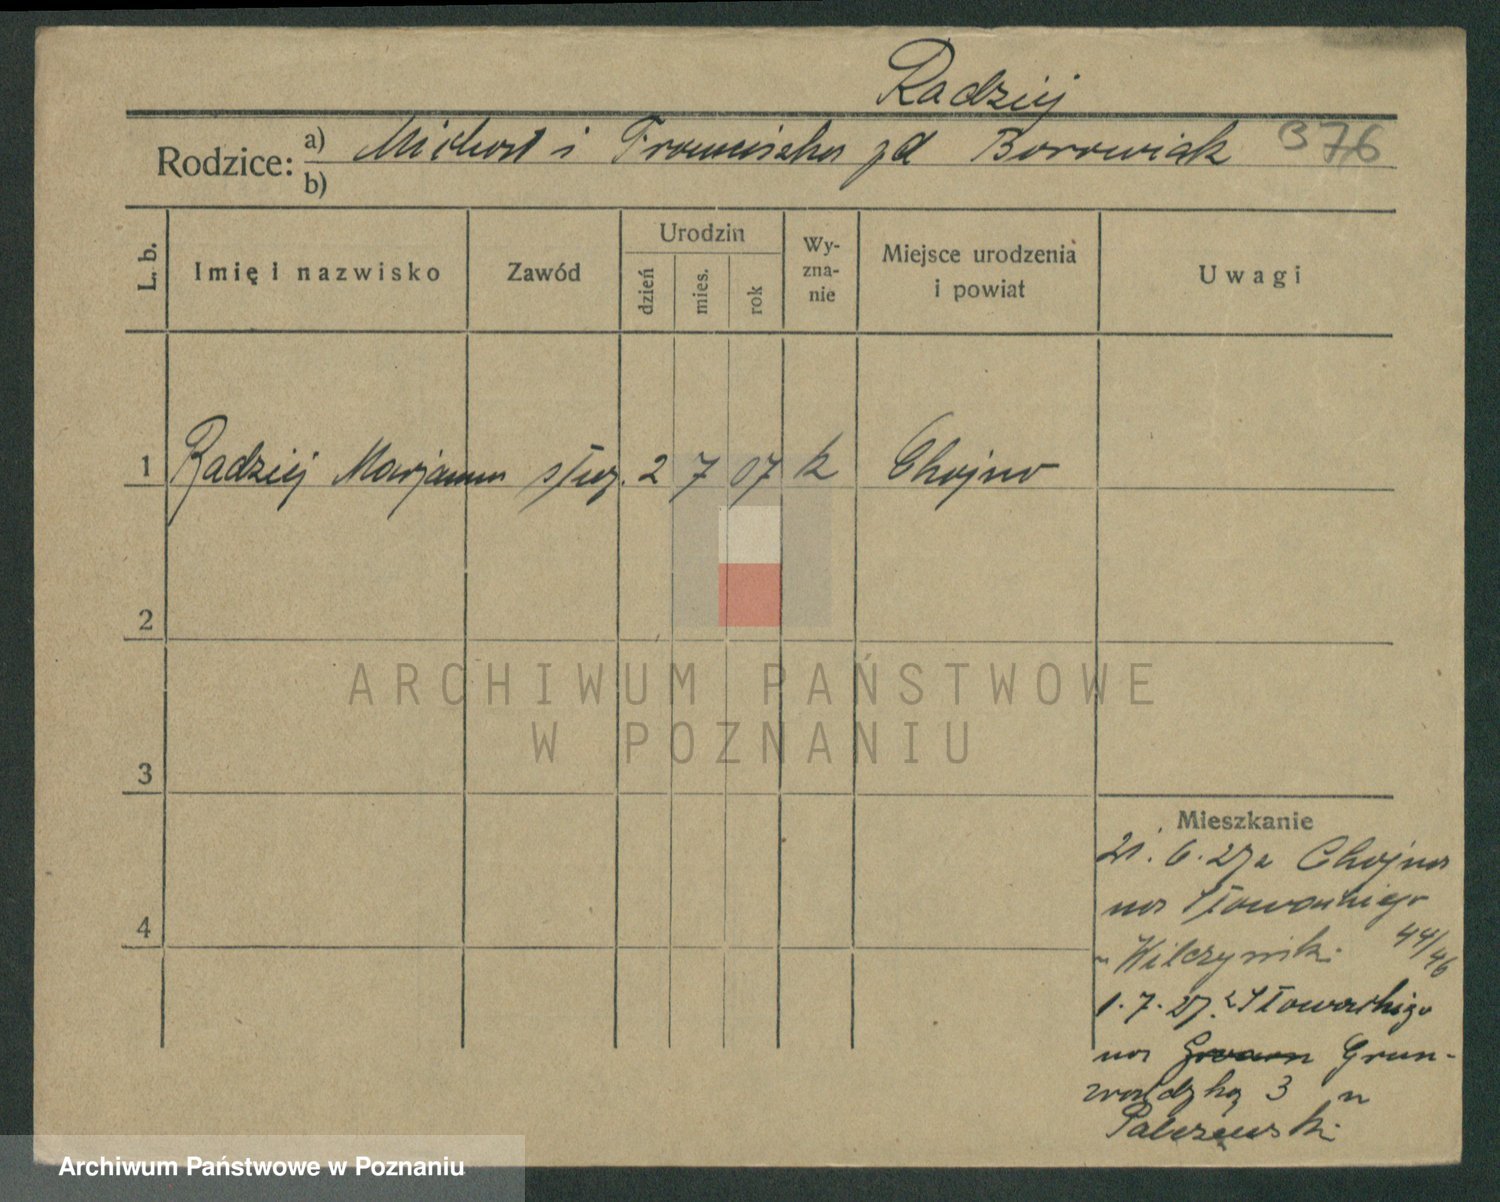 Radziej
Rodzice: a) Michał i Franciszka zd Borowiak 376
b)
L. b. Imię i nazwisko Zawód Urodzin dzień mies. rok Wy-zna-nie Miejsce urodzenia i powiat Uwagi
1 Radziej Marjanna służ. 2 7 07 k Chojno
2
ARCHIWUM PAŃSTWOWE
W POZNANIU
3
Mieszkanie
21. 6. 27 z Chojna
na Słowackiego
4
u Wilczyński 44/46
1. 7. 27. z Słowackiego
na Grun-
waldzką 3 u
Archiwum Państwowe w Poznaniu